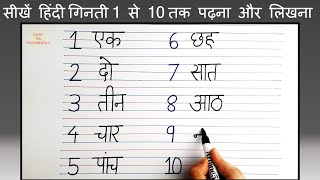 सीखें हिंदी गिनती 1 से 10 तक पढ़ना और लिखना
1 एक
2 दो
3 तीन
4 चार
5 पांच
6 छह
7 सात
8 आठ
9 न
10